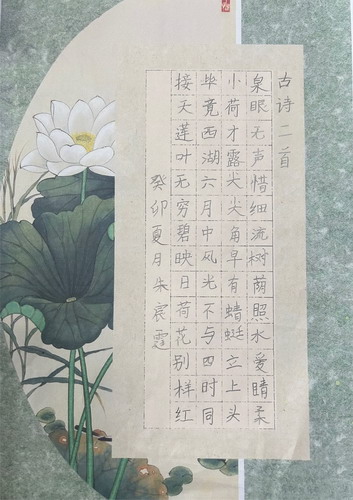 古诗二首
泉眼无声惜细流树荫照水爱晴柔
小荷才露尖尖角早有蜻蜓立上头
毕竟西湖六月中风光不与四时同
接天莲叶无穷碧映日荷花别样红
癸卯夏月朱宸霆